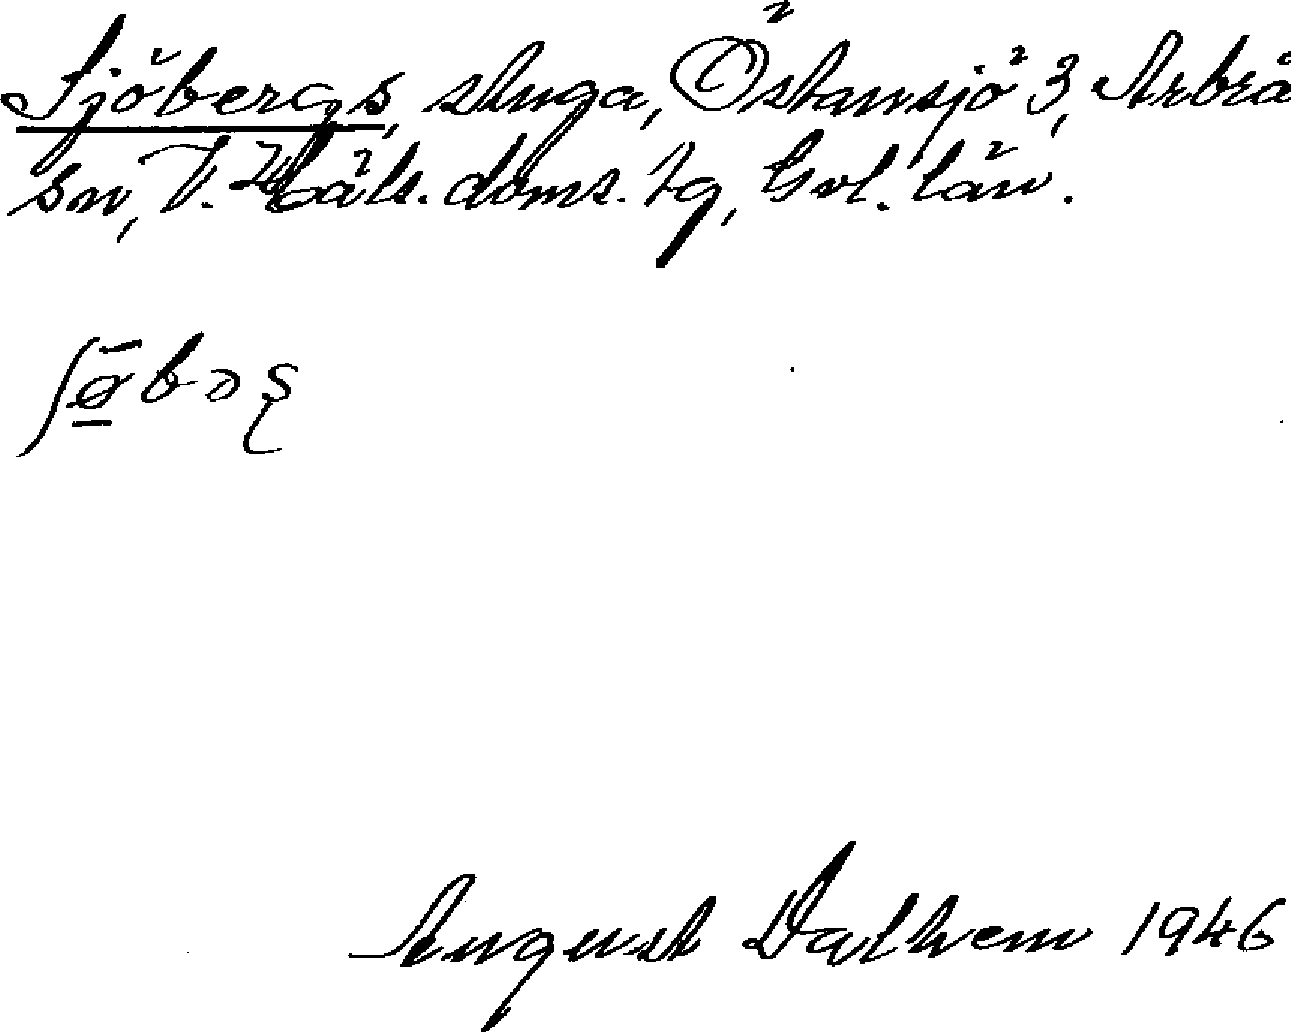 Sjöbergs, stuga, Östansjö 3, Arbrå
sn, V. Häls. doms. tg, Gvl. län.
ʃø̱̄bəʂ
August Dalhem 1946